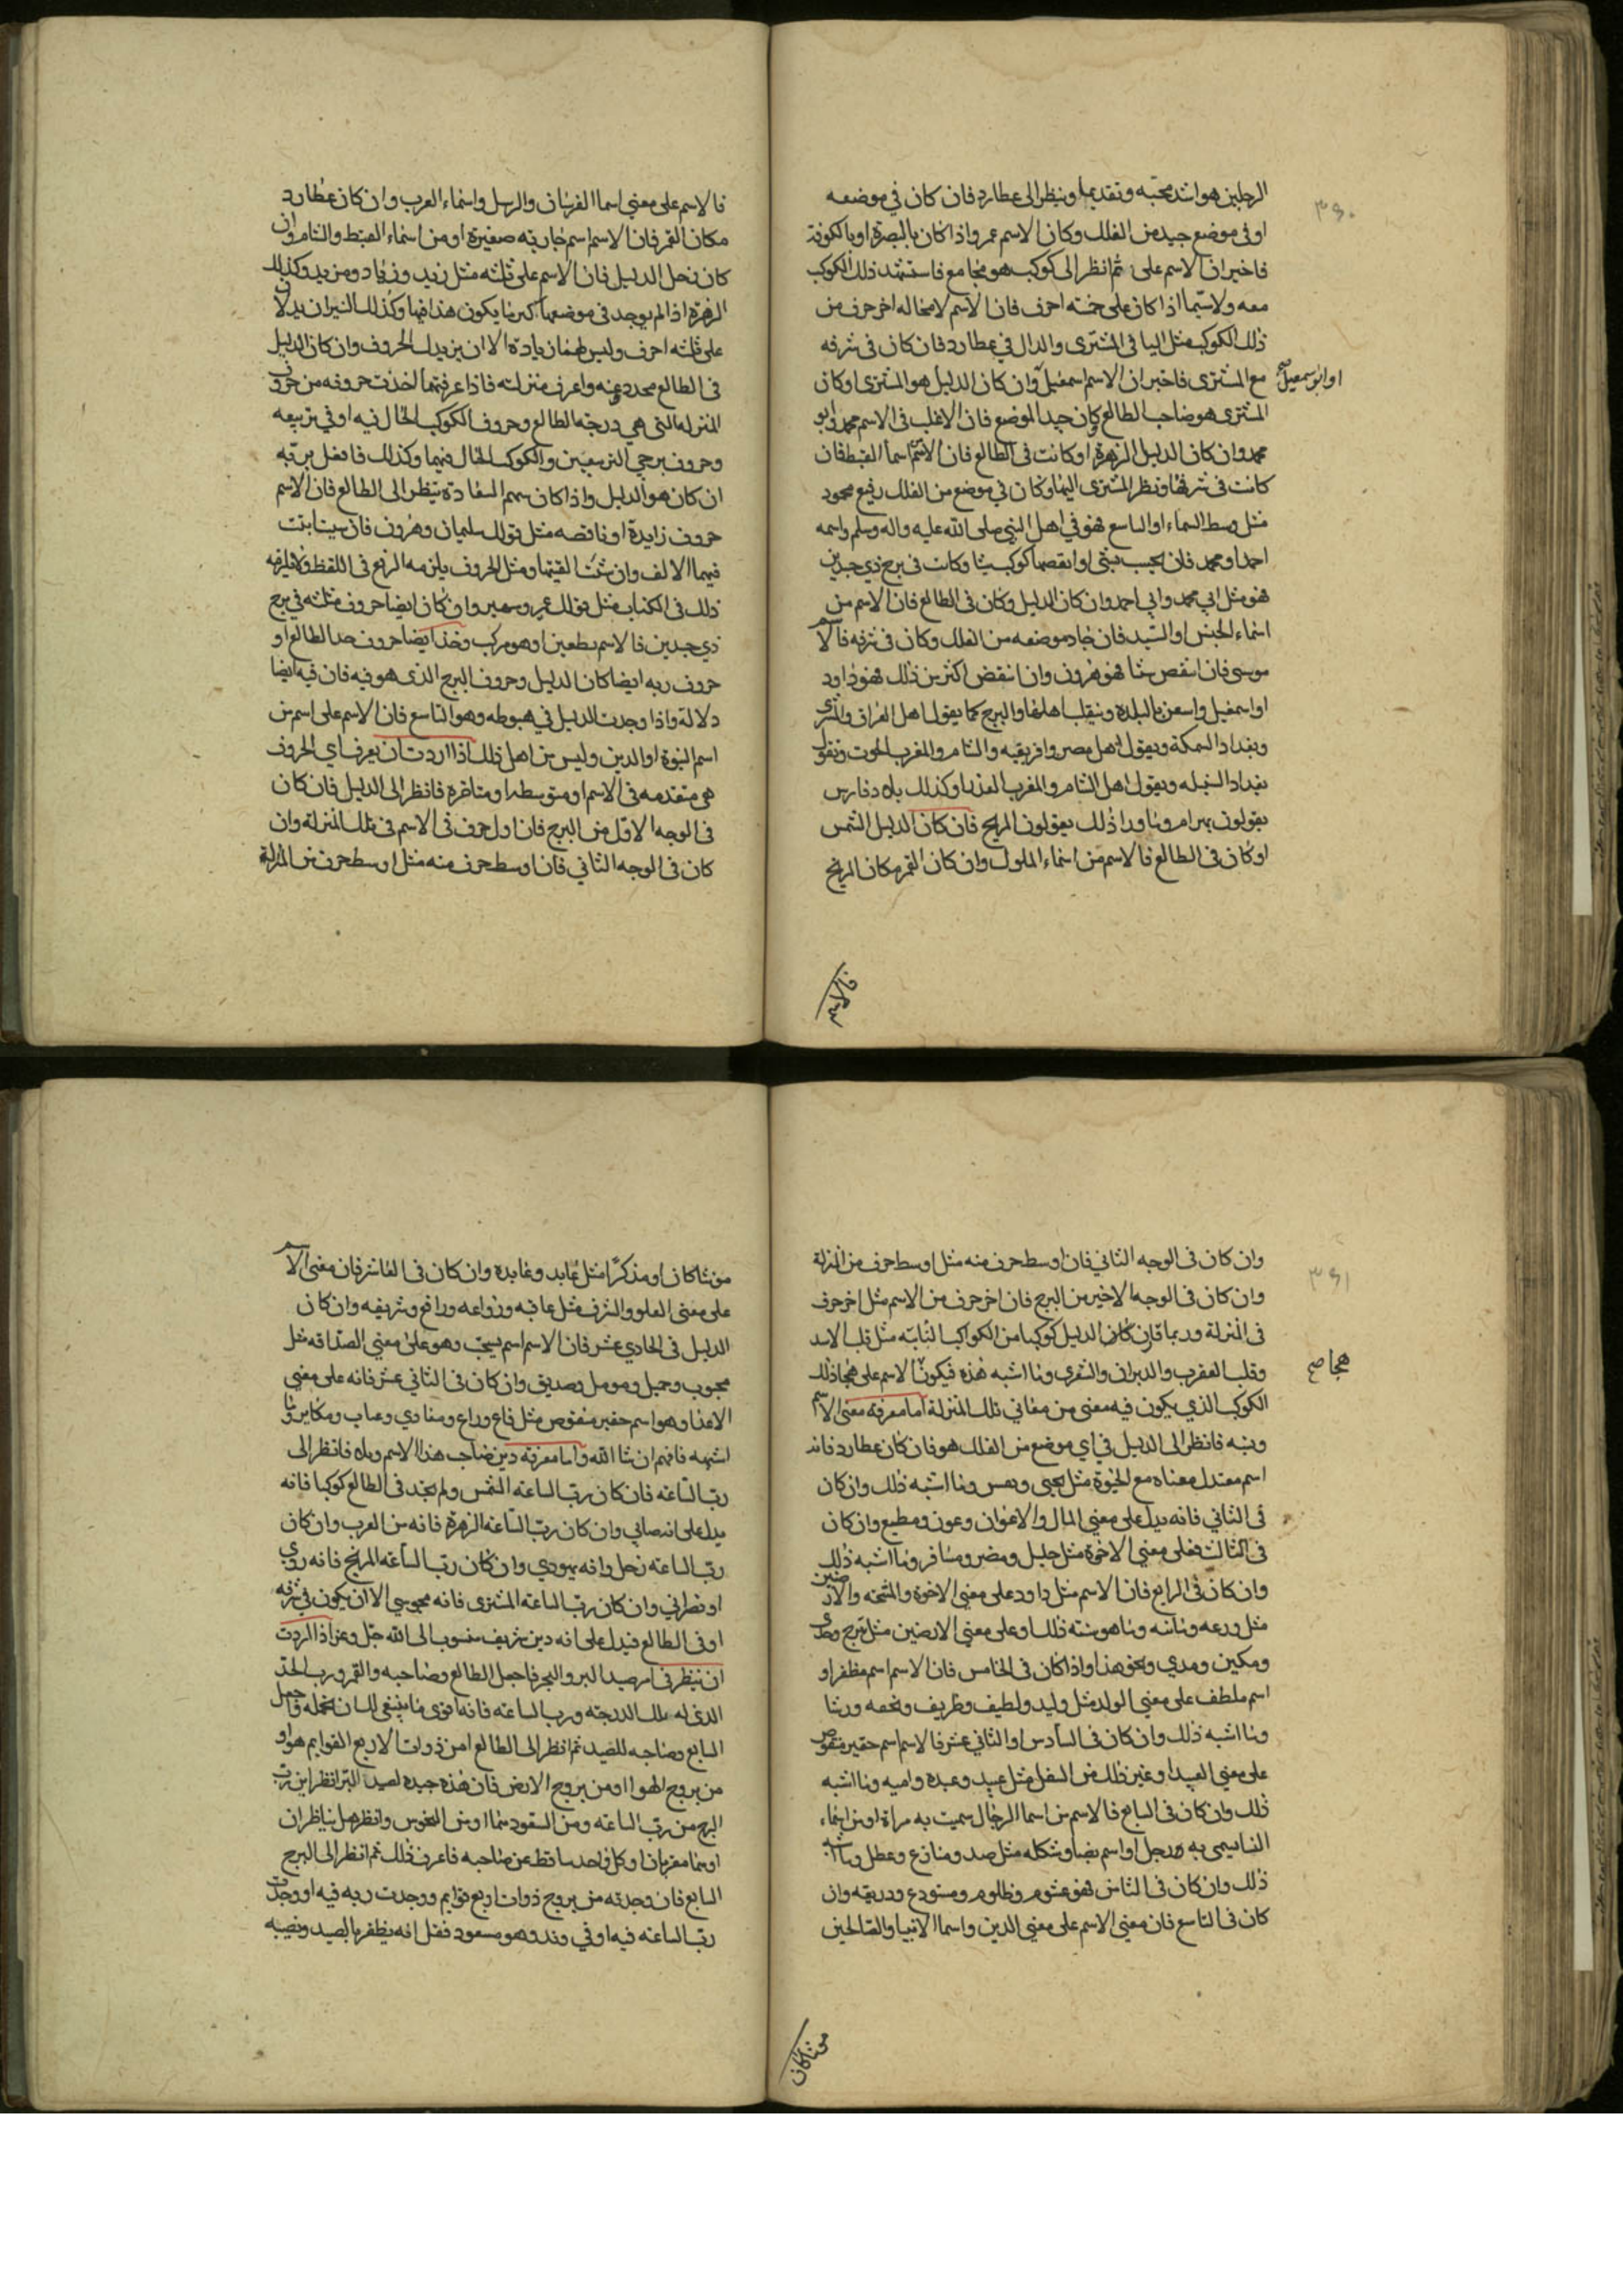 ٣٦٠
الرجلين هو اشد محبته وتقديما ونيظر الى عطارد فان كان في موضعه
او في موضع جيد من الفلك وكان الاسم عمر واذا كان بالبصرة او بالكوفة
فاخبر ان الاسم على ثم انظر الى كوكب هو مجامع فاستشهد ذلك الكوكب
معه ولا سيما اذا كان على خمسة احرف فان الاسم لا محاله اخر حرف من
ذلك الكوكب مثل اليا في المشترى والدال في عطارد فان كان في شرفه
مع المشترى فاخبر ان الاسم اسمعيل وان كان الدليل هو المشترى او كان
او ابو اسمعيل صح
المشترى هو صاحب الطالع وكان جيد الموضع فان الاغلب في الاسم محمد وابو
محمد وان كان الدليل الزهرة او كانت في الطالع فان الاسم اسما القبط فان
كانت في شرفها ونظر المشترى اليها وكان في موضع من الفلك رفيع محمود
مثل وسط السماء او التاسع فهو في اهل النبي صلى الله عليه واله وسلم واسمه
احمد او محمد فان بشى او انقصها كوكب شيا وكانت في برج ذي جسدين
فهو مثل ابي محمد وابي احمد وان كان الدليل وكان في الطالع فان الاسم من
اسماء الجنس او السيد فان جاد موضعه من الفلك وكان في شرفه فالاسم
موسى فان انتقص شيا فهو هرون وان انتقض اكثر من ذلك فهو داود
او اسمعيل واسعن بالبلدة ونيقلب اهلها والبرج كما يقول اهل العراق والشرق
وبغداد السمكة ويقول اهل مصر وافريقيه والشام والمغرب الحوت ونقول
بغداد السنبله ويقول اهل الشام والمغرب العذرا وكذلك بلاد فارس
يقولون بهرام وما ورا ذلك يقولون المريخ فان كان الدليل الشمس
او كان في الطالع فالاسم من اسماء الملوك وان كان القمر مكان المريخ
فالاسم
فالاسم على معنى اسما الفرسان والرسل واسماء العرب وان كان عطارد
مكان القمر فان الاسم اسم جاريه صغيرة او من اسماء القبط والشام وان
كان زحل الدليل فان الاسم على ثلثه مثل زيد وزياد ومزيد وكذلك
الزهرة اذا لم يوجد في موضعها كبر ما يكون هذا فيها وكذلك النيران يدلان
على ثلثه احرف وليس لهما زيادة الا ان يزيد الحروف وان كان الدليل
في الطالع محدد عنه واعرف منزلته فاذا عرفتها اخذت حروفه من حروف
المنزله التى هي درجة الطالع وحروف الكوكب الحال فيه او في تربيعه
وحروف برجي التربيعين والكوكب الحال فيهما وكذلك فافعل برتبه
ان كان هو الدليل واذا كان سهم السعادة ينظر الى الطالع فان الاسم
حروف زايدة او ناقصه مثل قولك سليمان وهرون فان شيت اثبت
فيهما الالف وان شئت القيتها ومثل الحروف يلزمه الرفع في اللفظ ولا يلزمه
ذلك في الكتاب مثل قولك عمير وسمير وان كان ايضا حروف مثلثه في برج
ذي جسدين فالاسم بطعين او هو مركب وخذ ايضا حروف حد الطالع او
حروف ربه ايضا كان الدليل وحروف البرج الذى هو فيه فان فيه ايضا
دلالة واذا وجدت الدليل في هبوطه وهو التاسع فان الاسم على اسم من
اسم النبوة او الدين وليس من اهل ذلك اذا اردت ان يعرف اي الحروف
هي متقدمه في الاسم او متوسطه او متاخرة فانظر الى الدليل فان كان
في الوجه الاول من البرج فان اول حرف في الاسم في تلك المنزلة وان
كان في الوجه الثاني فان اوسط حرف منه مثل اوسط حرف من المنزلة
٣٦١
وان كان في الوجه الثاني فان اوسط حرف منه مثل اوسط حرف من المنزلة
وان كان في الوجه الاخير من البرج فان اخر حرف من الاسم مثل اخر حرف
في المنزلة وربما قارن كان الدليل كوكبا من الكواكب الثابته مثل قلب الاسد
وقلب العقرب والدبران والشعرى وما اشبه هذه فيكون الاسم على هجا ذلك
هجا صح
الكوكب الذي يكون فيه معنى من معاني تلك المنزلة اما معرفة معنى الاسم
ونيته فانظر الى الدليل في اي موضع من الفلك هو فان كان عطارد فانه
اسم معتدل معناه مع الحيوة مثل يحيى ويعيس وما اشبه ذلك وان كان
في الثاني فانه يدل على معنى المال والاعوان وعون ومطيع وان كان
في الثالث فعلى معنى الاخوة مثل خليل ومضر ومسافر وما اشبه ذلك
وان كان في الرابع فان الاسم مثل داود على معنى الاخوة والارضين
مثل ورعه وما هو شبه ذلك او على معنى الارضين مثل برج
ومكين ومدي ونحو هذا واذا كان في الخامس فان الاسم اسم مظفر او
اسم ملطف على معنى الولد مثل وليد ولطيف وظريف وتحفه ورشا
وما اشبه ذلك وان كان في السادس او الثاني عشر فالاسم اسم حقير منقوص
على معنى العبيد او غير ذلك من السفل مثل عبيد وعبده واميه وما اشبه
ذلك وان كان في السابع فالاسم من اسما الرجال سميت به مراة او من اسماء
النسا سمي به رجل او اسم يضاد شكله مثل ضد ومنازع وعطل وما اشبه
ذلك وان كان في الثامن فهو غشوم وظلوم ومستودع ودريقه وان
كان في التاسع فان معنى الاسم على معنى الدين واسما الانبيا والصالحين
مونثا كان
مونثا كان او مذكرا مثل عابد وعابده وان كان في العاشر فان معنى الاسم
على معنى العلو والشرف مثل عاقبه وزواعه ورافع وشريفه وان كان
الدليل في الحادي عشر فان الاسم اسم يحبب وهو على معنى الصداقه مثل
محبوب وجميل ومومل وصديق وان كان في الثاني عشر فانه على معنى
الاعدا وهو اسم حقير منقوص مثل قاع وراع ومعادي وعياب ومكابر وما
اشبهه فافهم ان شا الله واما معرفة دين صاحب هذا الاسم وبلاه فانظر الى
رب الساعه فان كان رب الساعة الشمس ولم تجد في الطالع كوكبا فانه
يدل على انه صابي وان كان رب الساعة الزهرة فانه من العرب وان كان
رب الساعه زحل وانه يهودي وان كان رب الساعة المريخ فانه رومي
او نصراني وان كان رب الساعة المشترى فانه مجوسي الا ان يكون في شرفه
او في الطالع فيدل على انه دين شريف منسوب الى الله جل وعز اذا اردت
ان تنظر في امر صيد البر والبحر فاجعل الطالع وصاحبه والقمر ورب الحد
الذي له تلك الدرجة ورب الساعة فانه اقوى ما ينبغي لك ان تجعله واجعل
السابع وصاحبه للصيد ثم انظر الى الطالع امن ذوات الاربع القوايم هو او
من بروج الهوا او من بروج الارض فان هذه جيده لصيد البر انظر اين رب
البرج من رب الساعه ومن السعود سما او من النحوس وانظر هل يناظران
اوهما مقربان او كل واحد ساقط عن صاحبه فاعرف ذلك ثم انظر الى البرج
السابع فان وجدته من بروج ذوات اربع قوايم ووجدت ربه فيه او وجدت
رب الساعه فيه او في وتد وهو مسعود فقل انه يظفر بالصيد ويصيبه